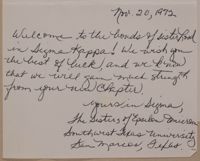 Nov. 20, 1972
Welcome to the bonds of sisterhood
in Sigma Kappa! We wish you
the best of luck, and we know
that we will gain much strength
from your new Chapter.
Yours in Sigma,
The Sisters of Epsilon Omicron
Southwest Texas University
San Marcos, Texas.